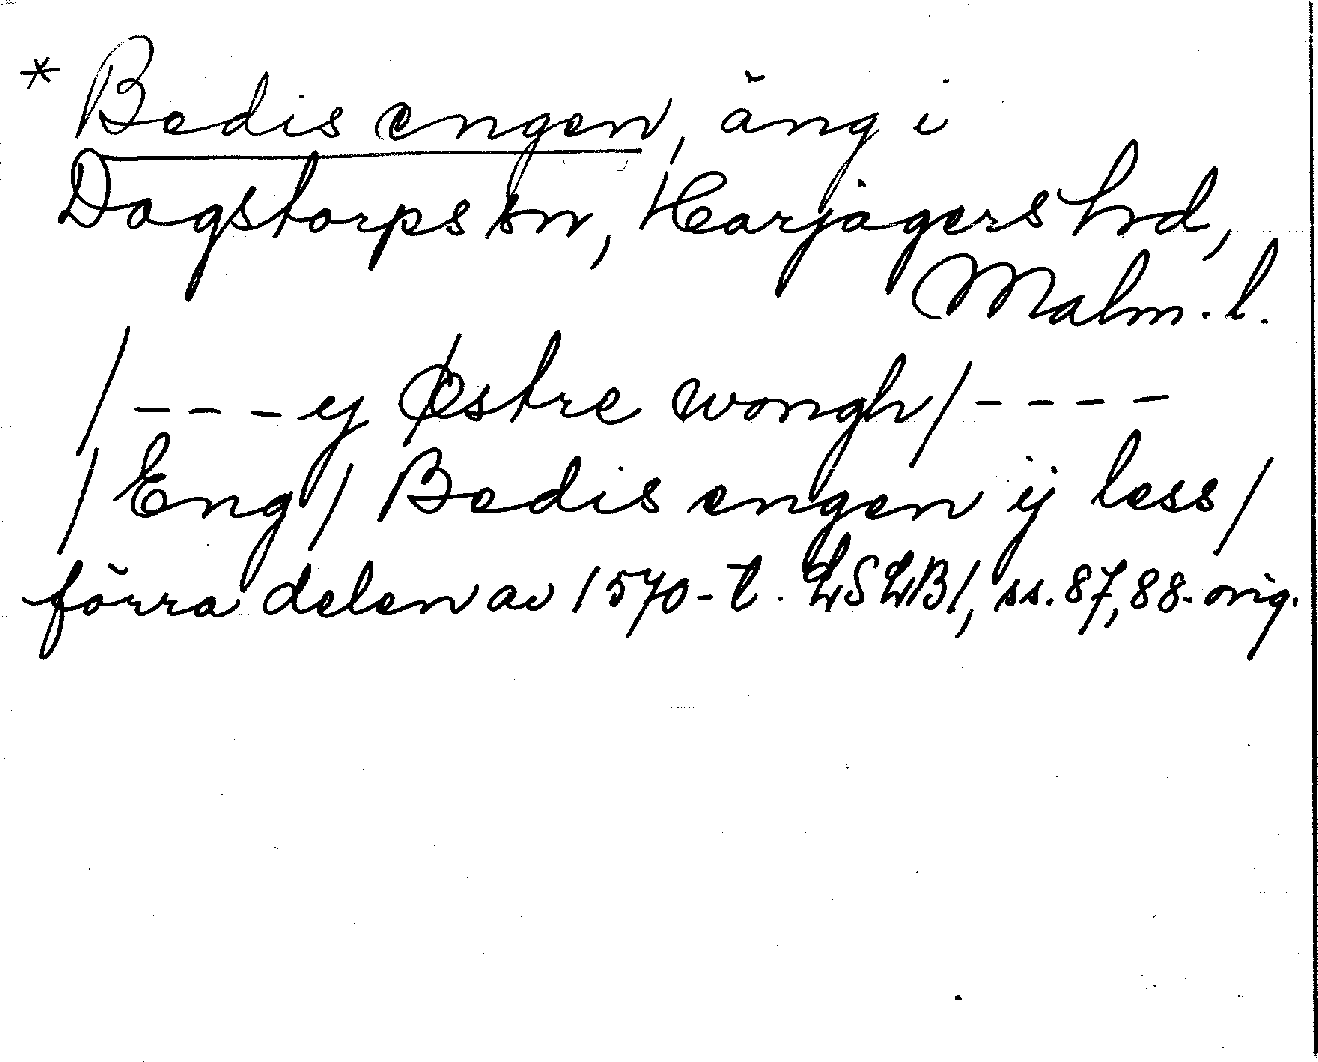 * Bedis engen, äng i
Dagstorps sn, Harjagers hrd,
Malm. l.
/ - - - y Østre wongh / - - - -
/ Eng / Bedis engen ij less /
förra delen av 1570-t. LSLB1, ss. 87, 88. orig.